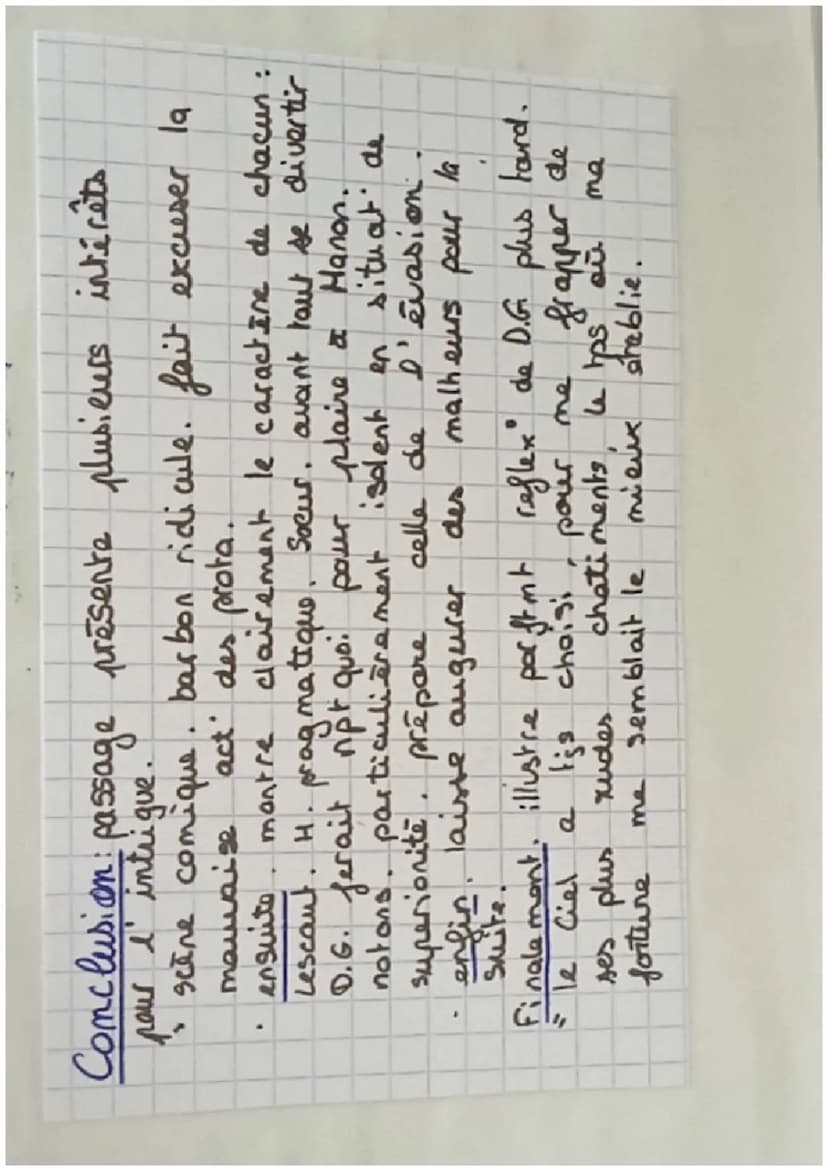 Conclusion: passage présente plusieurs intérêts
pour l'intrigue.
↳ scène comique. barbon ridicule. fait excuser la
mauvaise act° des prota.
• ensuite. montre clairement le caractère de chacun :
Lescaut. H. pragmatique. Soeur. avant tout se divertir
D.G. ferait npt quoi pour plaire à Manon.
notons. particulièrement isolent en situat° de
supériorité. prépare celle de l'évasion.
• enfin. laisse augurer des malheurs pour la
suite.
Finalement. illustre parftmt reflex° de D.G plus tard.
"le Ciel a tjs choisi, pour me frapper de
ses plus rudes chatiments, le tps où ma
fortune me semblait le mieux établie.